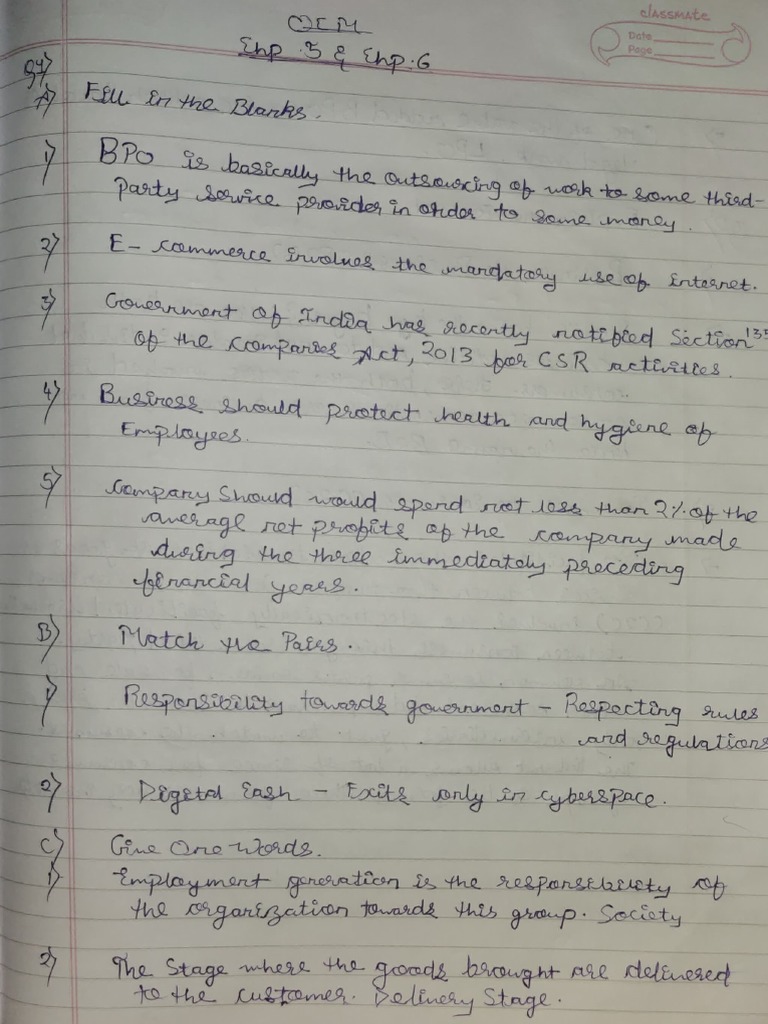 classmate
Date
Page
OCM
Chp. 5 & Chp. 6
Q1)
A) Fill in the Blanks.
1) BPO is basically the outsourcing of work to some third-
party service provider in order to some money.
2) E-commerce involves the mandatory use of internet.
3) Government of India has recently notified Section 135
of the Companies Act, 2013 for CSR activities.
4) Business should protect health and hygiene of
Employees.
5) Company Should would spend not less than 2% of the
average net profits of the company made
during the three immediately preceding
financial years.
B) Match the Pairs.
1) Responsibility towards government - Respecting rules
and regulations
2) Digital Cash - Exits only in cyberspace.
C) Give One Words.
1) Employment generation is the responsibility of
the organization towards this group. Society
2) The Stage where the goods brought are delivered
to the customer. Delivery Stage.